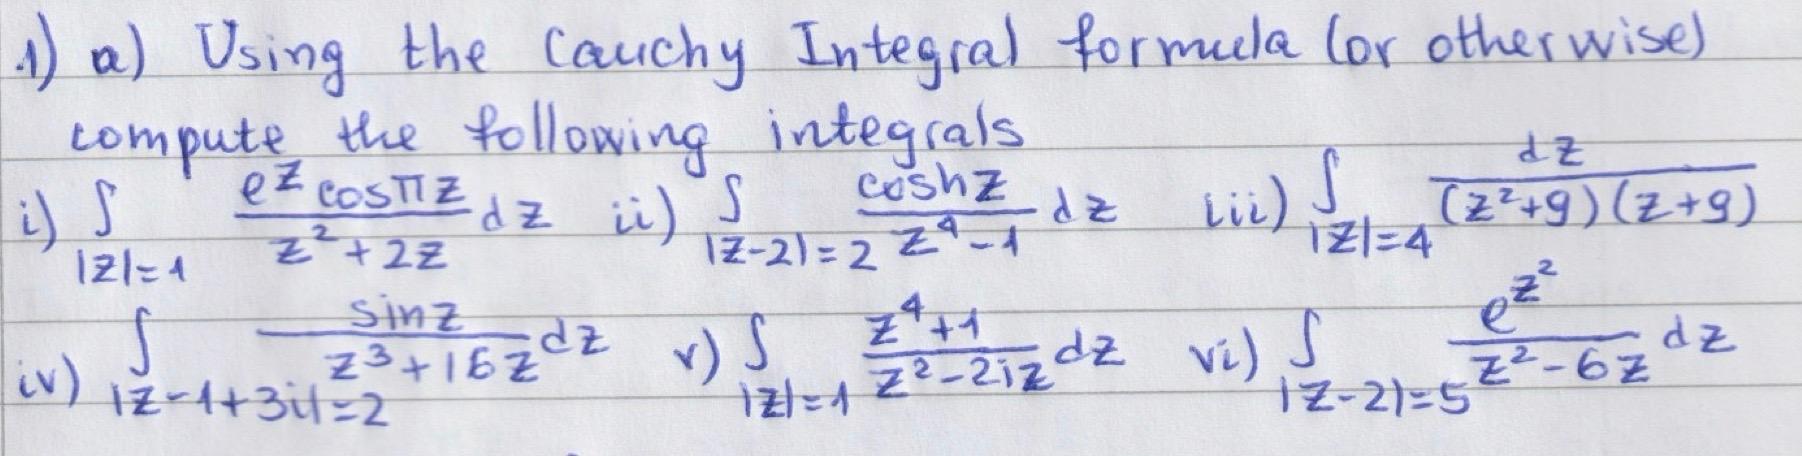 1) a) Using the Cauchy Integral formula (or otherwise)
compute the following integrals
i) ∫_{|z|=1} \frac{e^z cos πz}{z^2+2z} dz ii) ∫_{|z-2|=2} \frac{cosh z}{z^4-1} dz iii) ∫_{|z|=4} \frac{dz}{(z^2+9)(z+9)}
iv) ∫_{|z-1+3i|=2} \frac{sin z}{z^3+16z} dz v) ∫_{|z|=1} \frac{z^4+1}{z^2-2iz} dz vi) ∫_{|z-2|=5} \frac{e^{z^2}}{z^2-6z} dz